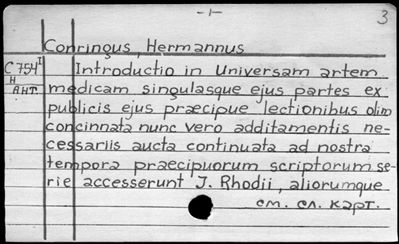 -1-
3
Conringus, Hermannus
C 754 I
H
АНТ.
Introductio in universam artem
medicam singulasque ejus partes ex
publicis ejus præcipue lectionibus olim
concinnata nunc vero additamentis ne-
cessariis aucta continuata ad nostra
tempora praecipuorum scriptorum se-
rie accesserunt J. Rhodii, aliorumque
см. сл. карт.